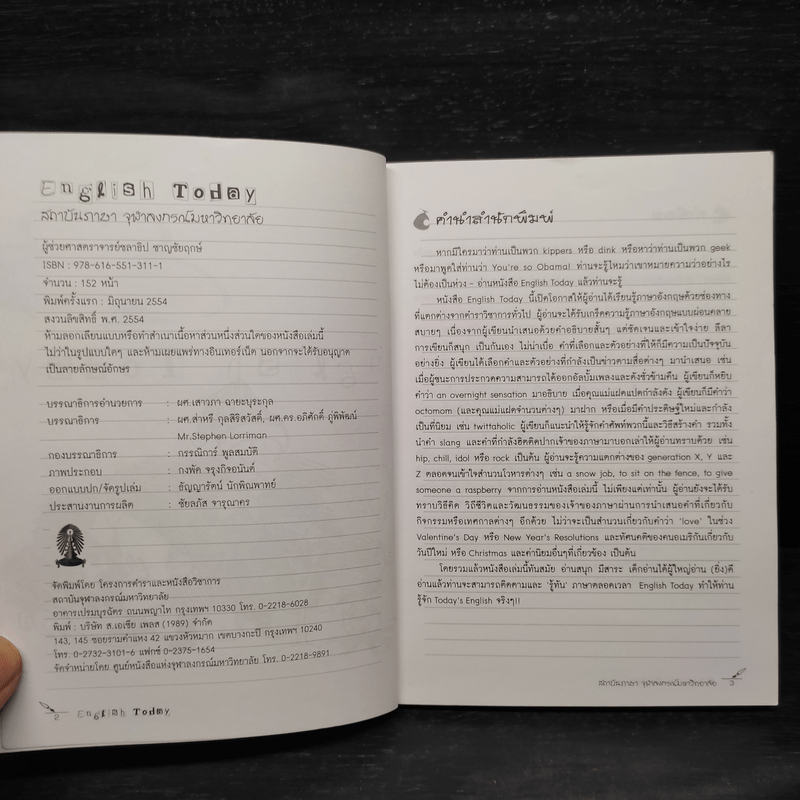 English Today
สถาบันภาษา จุฬาลงกรณ์มหาวิทยาลัย
ผู้ช่วยศาสตราจารย์ชลาธิป ชาญชัยฤกษ์
ISBN : 978-616-551-311-1
จำนวน : 152 หน้า
พิมพ์ครั้งแรก : มิถุนายน 2554
สงวนลิขสิทธิ์ พ.ศ. 2554
ห้ามลอกเลียนแบบหรือทำสำเนาเนื้อหาส่วนหนึ่งส่วนใดของหนังสือเล่มนี้
ไม่ว่าในรูปแบบใดๆ และห้ามเผยแพร่ทางอินเทอร์เน็ต นอกจากจะได้รับอนุญาต
เป็นลายลักษณ์อักษร
บรรณาธิการอำนวยการ : ผศ.เสาวภา ฉายะบุระกุล
บรรณาธิการ : ผศ.ส่าหรี กุลสิริสวัสดิ์, ผศ.ดร.อภิศักดิ์ ภู่พิพัฒน์
Mr.Stephen Lorriman
กองบรรณาธิการ : กรรณิการ์ พูลสมบัติ
ภาพประกอบ : กงพัด จรุงกิจอนันต์
ออกแบบปก/จัดรูปเล่ม : ธัญญารัตน์ นักพิณพาทย์
ประสานงานการผลิต : ชัยลภัส จารุณาคร
จัดพิมพ์โดย โครงการตำราและหนังสือวิชาการ
สถาบันจุฬาลงกรณ์มหาวิทยาลัย
อาคารเปรมบุรฉัตร ถนนพญาไท กรุงเทพฯ 10330 โทร. 0-2218-6028
พิมพ์ : บริษัท ส.เอเซีย เพลส (1989) จำกัด
143, 145 ซอยรามคำแหง 42 แขวงหัวหมาก เขตบางกะปิ กรุงเทพฯ 10240
โทร. 0-2732-3101-6 แฟกซ์ 0-2375-1654
จัดจำหน่ายโดย ศูนย์หนังสือแห่งจุฬาลงกรณ์มหาวิทยาลัย โทร. 0-2218-9891
2 English Today
คำนำสำนักพิมพ์
หากมีใครมาว่าท่านเป็นพวก kippers หรือ dink หรือหาว่าท่านเป็นพวก geek
หรือมาพูดใส่ท่านว่า You're so Obama! ท่านจะรู้ไหมว่าเขาหมายความว่าอย่างไร
ไม่ต้องเป็นห่วง - อ่านหนังสือ English Today แล้วท่านจะรู้
หนังสือ English Today นี้เปิดโอกาสให้ผู้อ่านได้เรียนรู้ภาษาอังกฤษด้วยช่องทาง
ที่แตกต่างจากตำราวิชาการทั่วไป ผู้อ่านจะได้รับเกร็ดความรู้ภาษาอังกฤษแบบผ่อนคลาย
สบายๆ เนื่องจากผู้เขียนนำเสนอด้วยคำอธิบายสั้นๆ แต่ชัดเจนและเข้าใจง่าย ลีลา
การเขียนก็สนุก เป็นกันเอง ไม่น่าเบื่อ คำที่เลือกและตัวอย่างที่ให้ก็มีความเป็นปัจจุบัน
อย่างยิ่ง ผู้เขียนได้เลือกคำและตัวอย่างที่กำลังเป็นข่าวตามสื่อต่างๆ มานำเสนอ เช่น
เมื่อผู้ชนะการประกวดความสามารถได้ออกอัลบั้มเพลงและดังชั่วข้ามคืน ผู้เขียนก็หยิบ
คำว่า an overnight sensation มาอธิบาย เมื่อคุณแม่แฝดแปดกำลังดัง ผู้เขียนก็มีคำว่า
octomom (และคุณแม่แฝดจำนวนต่างๆ) มาฝาก หรือเมื่อมีคำประดิษฐ์ใหม่และกำลัง
เป็นที่นิยม เช่น twittaholic ผู้เขียนก็แนะนำให้รู้จักคำศัพท์พวกนี้และวิธีสร้างคำ รวมทั้ง
นำคำ slang และคำที่กำลังฮิตติดปากเจ้าของภาษามาบอกเล่าให้ผู้อ่านทราบด้วย เช่น
hip, chill, idol หรือ rock เป็นต้น ผู้อ่านจะรู้ความแตกต่างของ generation X, Y และ
Z ตลอดจนเข้าใจสำนวนโวหารต่างๆ เช่น a snow job, to sit on the fence, to give
someone a raspberry จากการอ่านหนังสือเล่มนี้ ไม่เพียงแค่เท่านั้น ผู้อ่านยังจะได้รับ
ทราบวิธีคิด วิถีชีวิตและวัฒนธรรมของเจ้าของภาษาผ่านการนำเสนอคำที่เกี่ยวกับ
กิจกรรมหรือเทศกาลต่างๆ อีกด้วย ไม่ว่าจะเป็นสำนวนเกี่ยวกับคำว่า 'love' ในช่วง
Valentine's Day หรือ New Year's Resolutions และทัศนคติของคนอเมริกันเกี่ยวกับ
วันปีใหม่ หรือ Christmas และค่านิยมอื่นๆที่เกี่ยวข้อง เป็นต้น
โดยรวมแล้วหนังสือเล่มนี้ทันสมัย อ่านสนุก มีสาระ เด็กอ่านได้ผู้ใหญ่อ่าน (ยิ่ง)ดี
อ่านแล้วท่านจะสามารถติดตามและ 'รู้ทัน' ภาษาตลอดเวลา English Today ทำให้ท่าน
รู้จัก Today's English จริงๆ!!
สถาบันภาษา จุฬาลงกรณ์มหาวิทยาลัย 3